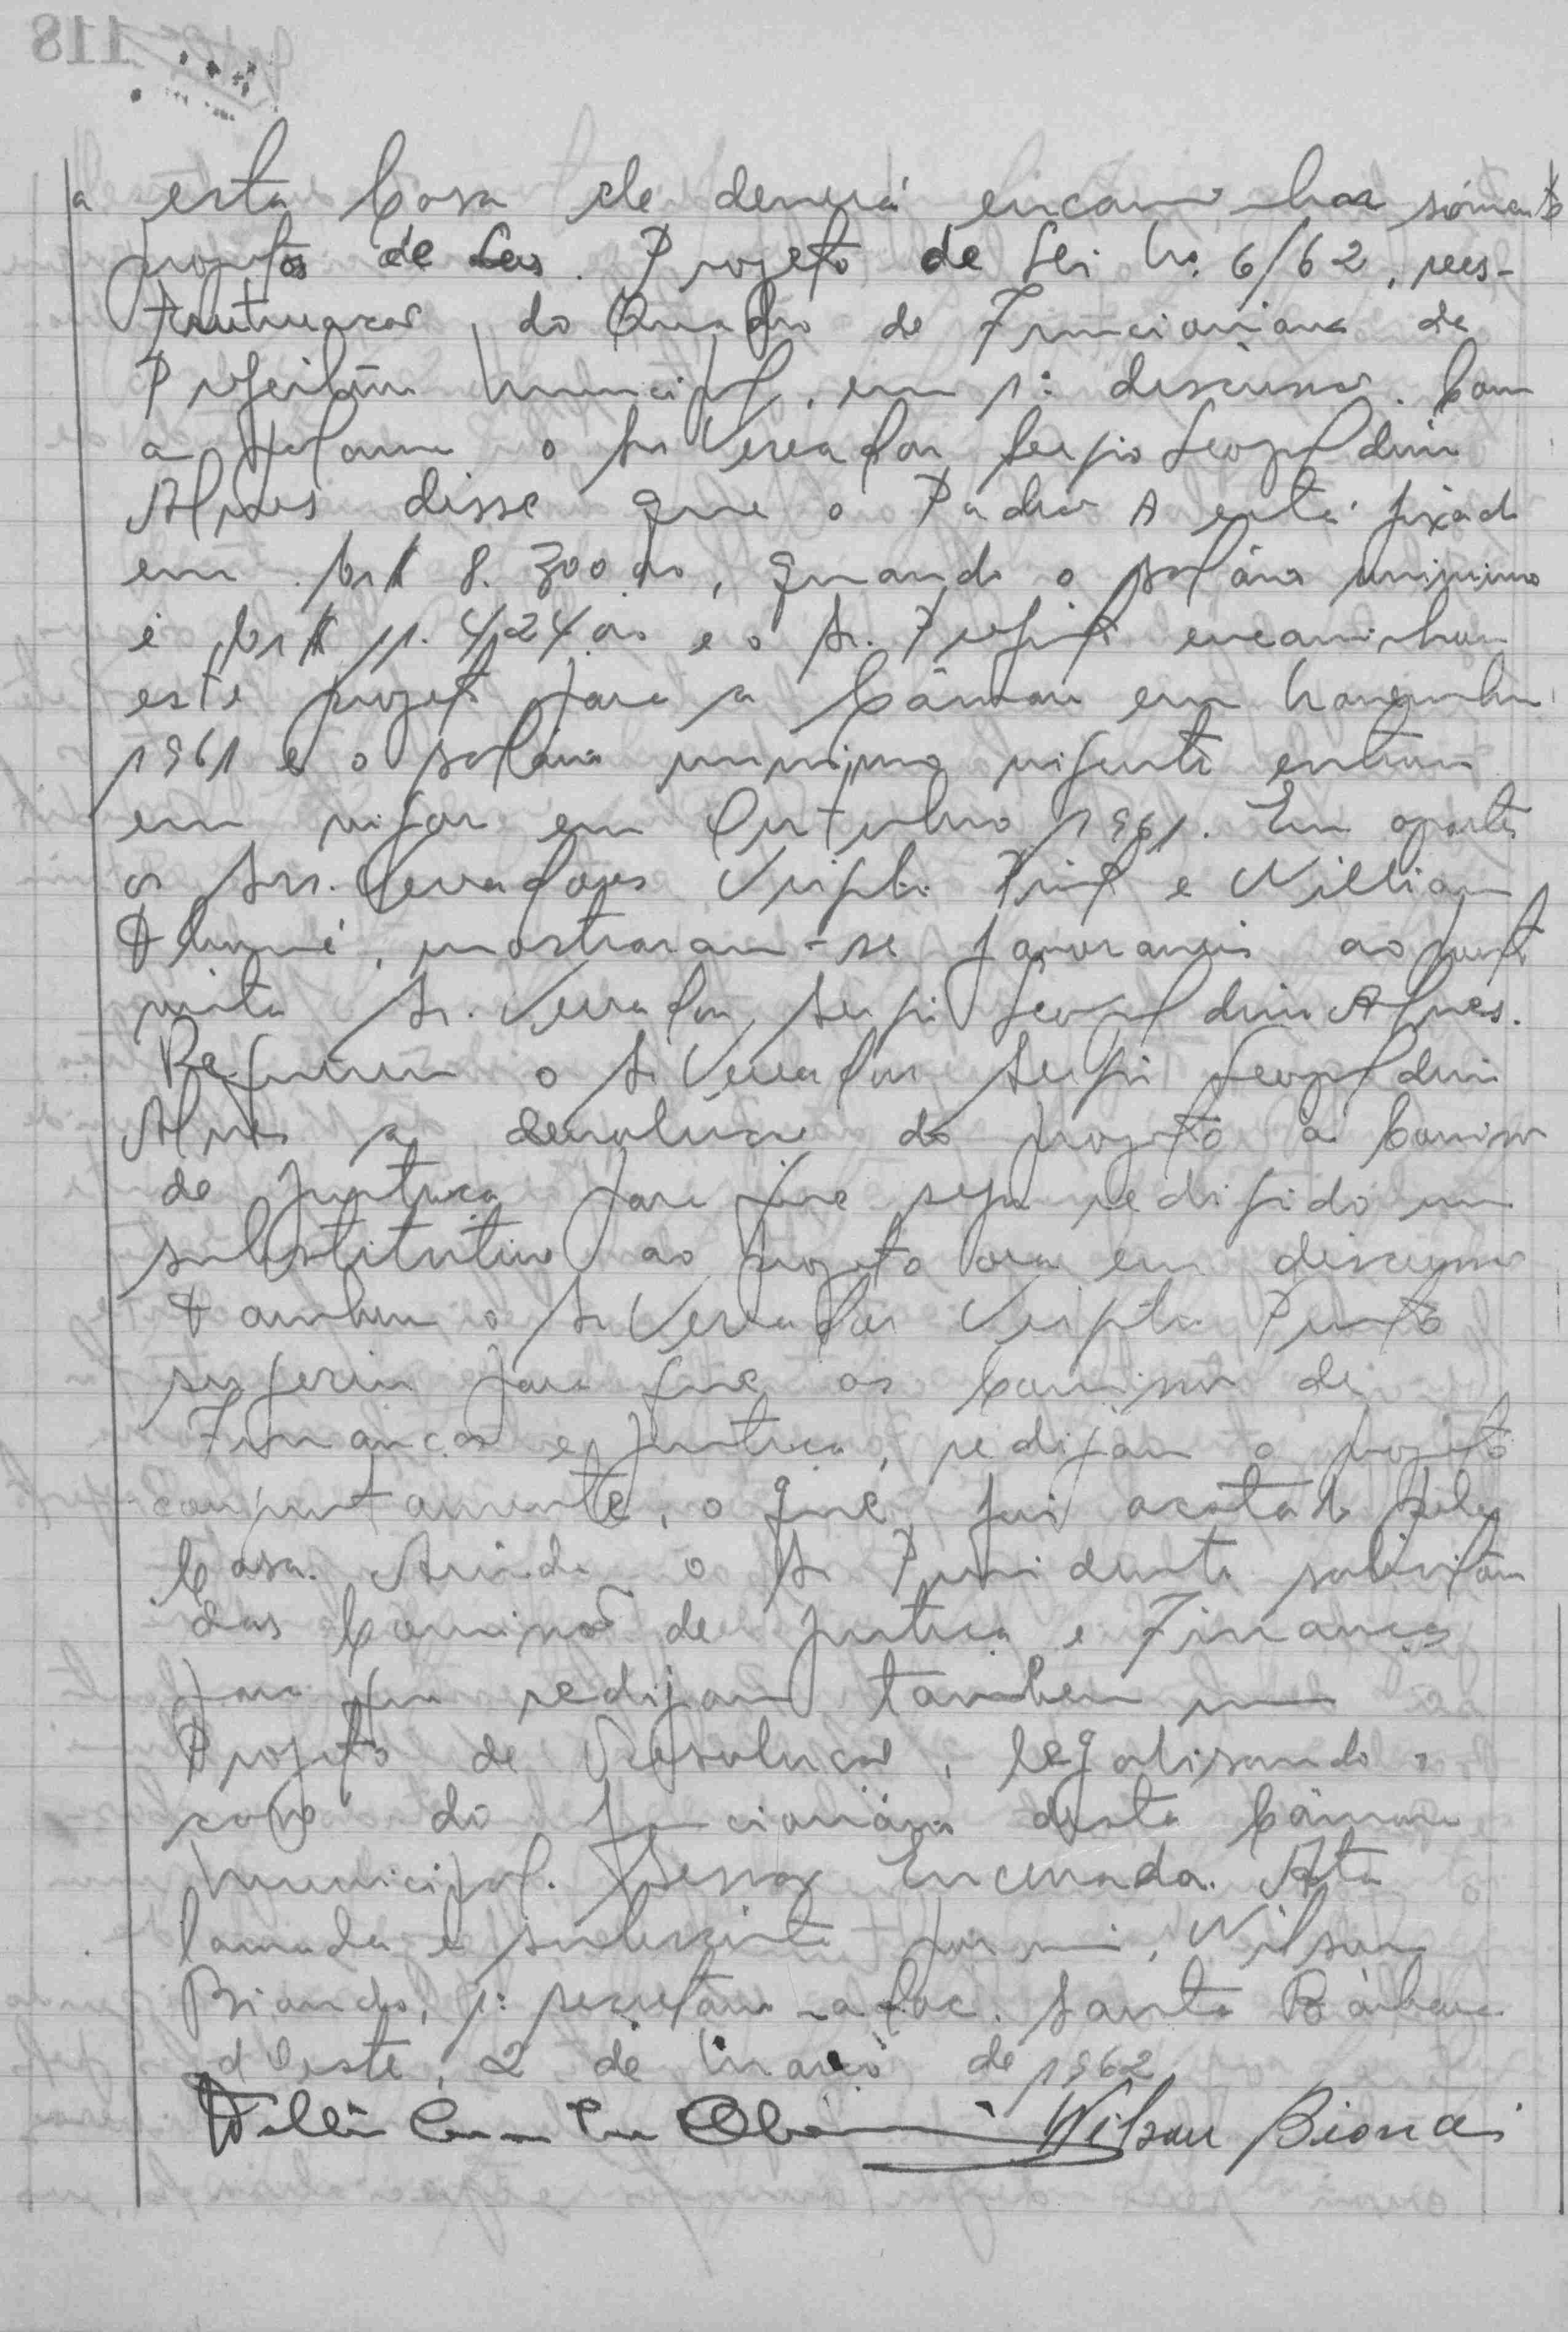 a esta Casa ele deverá encaminhar sómente
projetos de Leis. Projeto de Lei no. 6/62, rees-
truturação, do Quadro de Funcionarios da
Prefeitura Municipal, em 1ª discussão. Com
a palavra o Sr Vereador Sergio Leopoldino
Alves disse que o Padrão A está fixado
em Cr$ 8.300,00, quando o salário minimo
é Cr$ 11.424,00 e o Sr. Prefeito encaminhou
este projeto para a Câmara em Novembro
1961 e o salário minimo vigente entrou
em vigor em Outubro 1961. Em aparte
os Srs. Vereadores Virgilio e William
mostraram-se favoraveis ao ponto
vista Sr. Vereador, Sergio Leopoldino Alves.
Requereu o Sr Vereador Sergio Leopoldino
Alves a devolução do projeto a Comissão
de Justiça para que seja redigido um
substitutivo ao projeto ora em discussão
Tambem o Sr Vereador Virgilio
sugeriu para que as Comissão de
Finanças e Justiça, redijam o projeto
conjuntamente, o que foi acatado pela
Casa. Ainda o Sr Presidente solicitou
das Comissão de Justiça e Finanças
para que redijam tambem um
Projeto de Resolução, legalisando o
do funcionário desta Câmara
Municipal. Sessão Encerrada. Ata
lavrada e subescrita por mim, Wilson
Biondo, 1º secretário -adoc. Santa Bárbara
d'Oeste, 2 de Março de 1962
Wilson Biondi